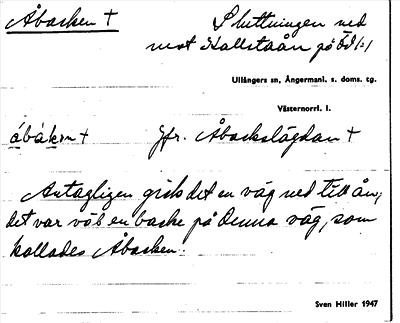 Åbacken †
Sluttningen ned
mot Hallstaån på
Ullångers sn, Ångermanl. s. doms. tg.
Västernorrl. l.
åbákən † Jfr. Åbackslägdan †
Antagligen gick det en väg ned till ån,
det var väl en backe på denna väg, som
kallades Åbacken.
Sven Hiller 1947